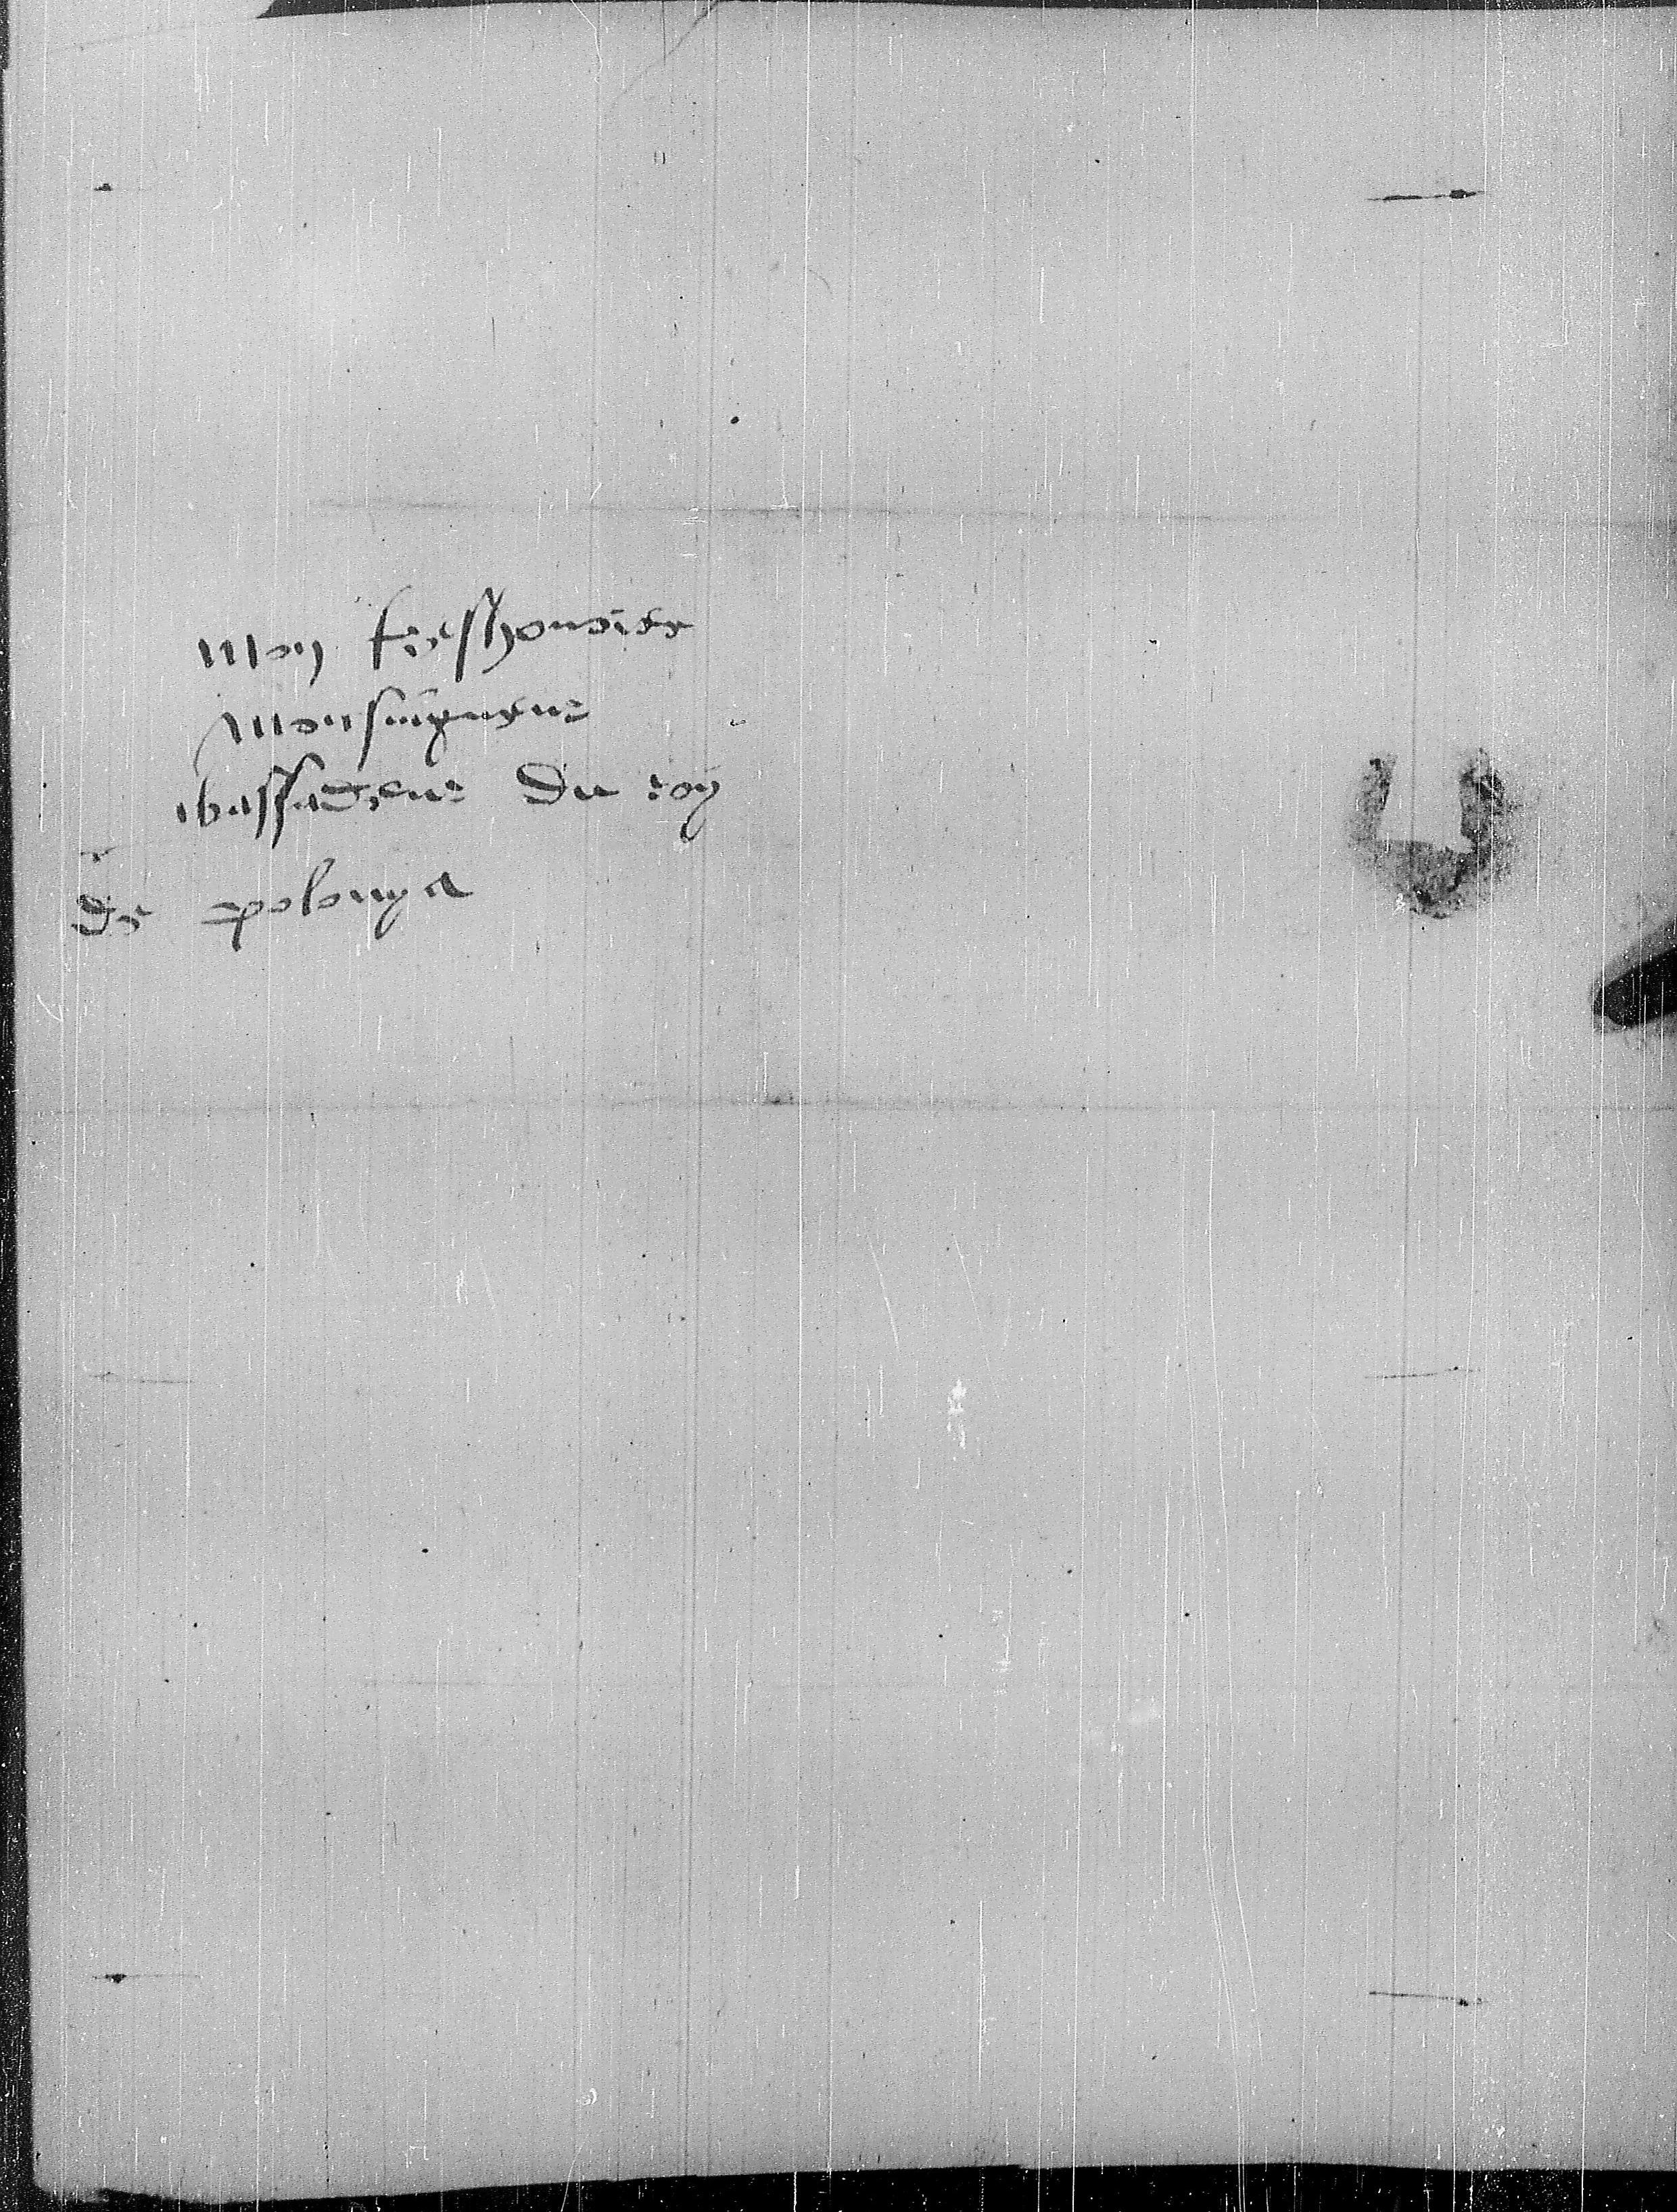 Mon treshonore
Monseigneur
ibassadeur du roy
de polonya